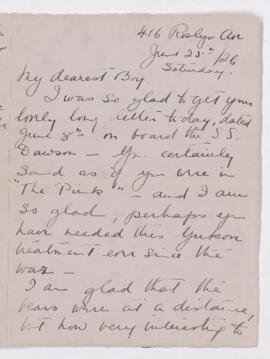 416 Roslyn Ave
June 25th/26
Saturday.
My dearest Boy.
I was so glad to get your
lovely long letter today, dated
June 8th on board the S.S.
Dawson - You certainly
sound as if you were in
"The Pink" - and I am
so glad, perhaps you
have needed this Yukon
treatment ever since the
war -
I am glad that the
bears were at a distance,
but how very interesting to